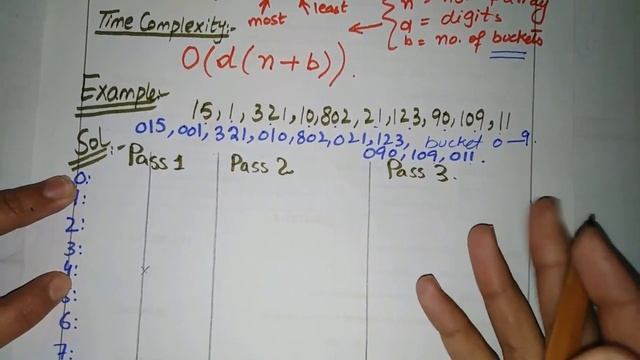 Time Complexity:-
most
least
d = digits
b = no. of buckets
O(d(n+b)).
Example:-
15, 1, 321, 10, 802, 21, 123, 90, 109, 11
Sol:-
015, 001, 321, 010, 802, 021, 123, bucket 0-9.
090, 109, 011.
Pass 1 Pass 2 Pass 3.
0:
1:
2:
3:
4:
6:
7: